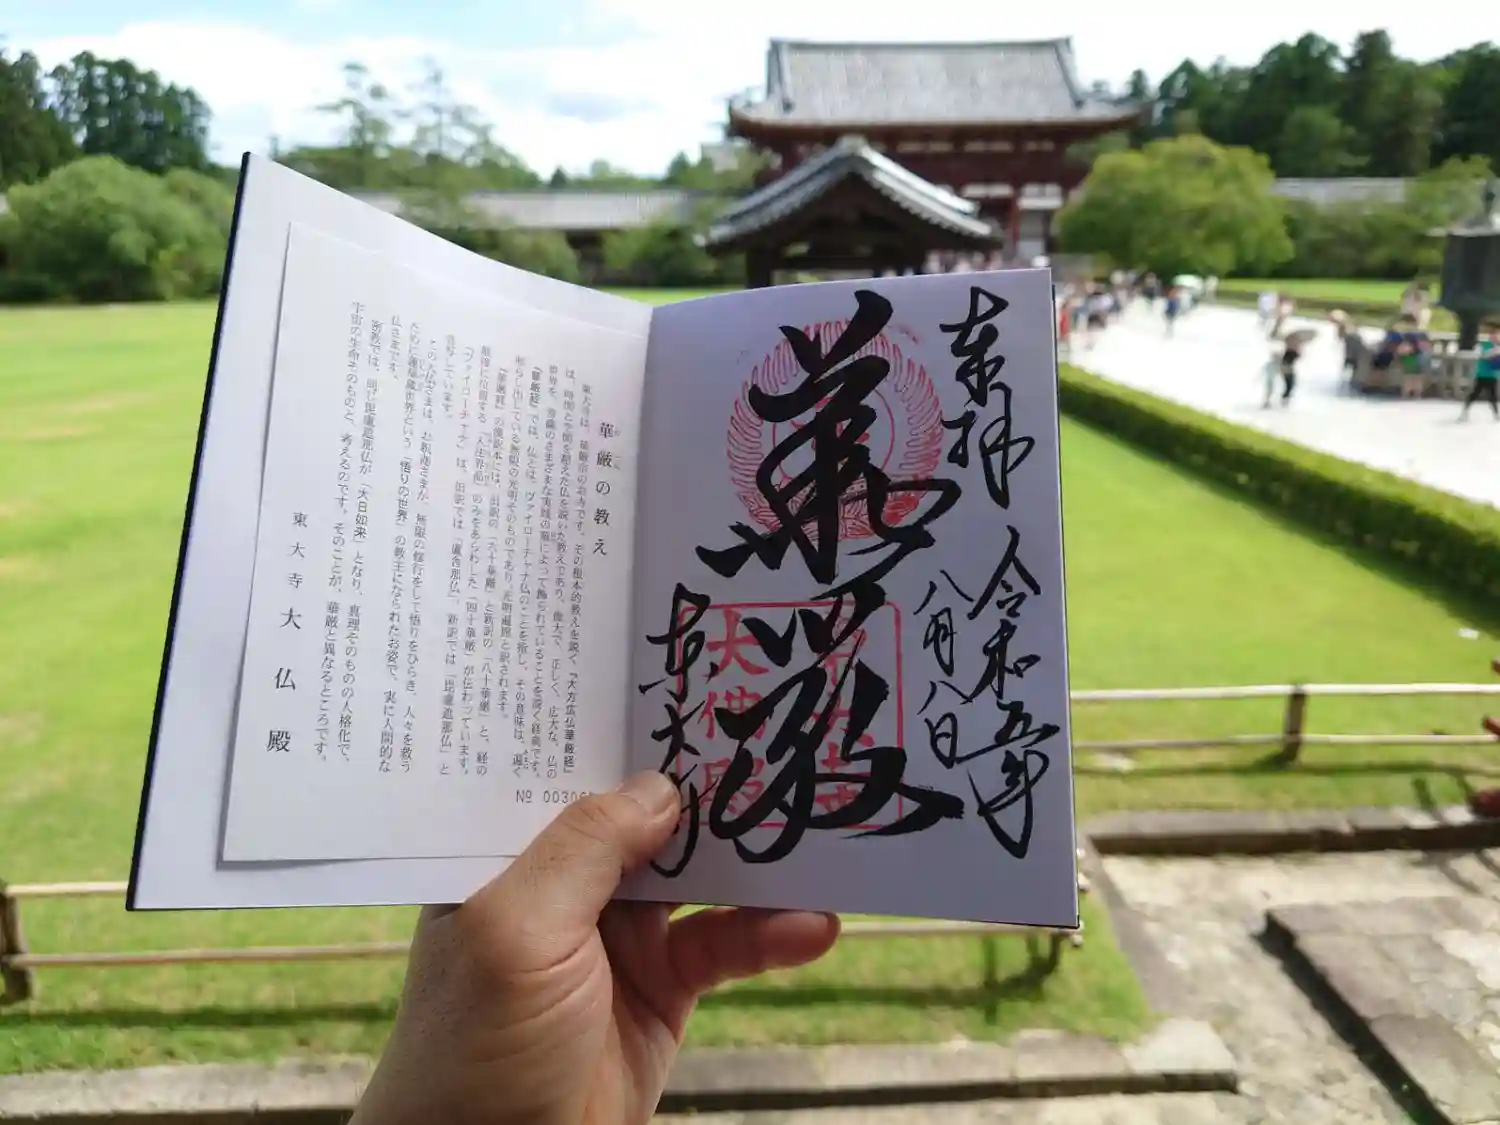 奉拝
令和五年
八月八日
華厳
東大寺
大佛殿
華厳の教え
東大寺は、華厳宗のお寺です。その根本的教えを説く『大方広仏華厳経』
は、時間と空間を超えた仏を説いた教えであり、偉大で、正しく、広大な、仏の
世界を、菩薩のさまざまな実践の華によって飾られていることを説く経典です。
『華厳経』では、仏とは、ヴァイローチャナ仏のことを指し、その意味は、遍く
照らし出している無限の光明そのものであり、光明遍照と訳されます。
『華厳経』の漢訳本には、旧訳の「六十華厳」と新訳の「八十華厳」と、経の
最後に位置する「入法界品」のみをあらわした「四十華厳」が伝わっています。
「ヴァイローチャナ」は、旧訳では「盧舎那仏」、新訳では「毘盧遮那仏」と
音写しています。
この大仏さまは、お釈迦さまが、無限の修行をして悟りをひらき、人々を救う
ために蓮華蔵世界という「悟りの世界」の教主になられたお姿で、実に人間的な
仏さまです。
密教では、同じ毘盧遮那仏が「大日如来」となり、真理そのものの人格化で、
宇宙の生命そのものと、考えるのです。そのことが、華厳と異なるところです。
東大寺 大仏殿
№ 0030